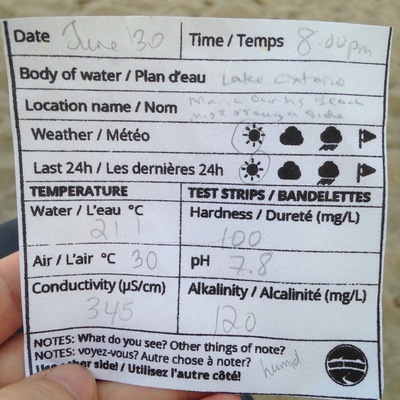 Date June 30 Time / Temps 8:00pm
Body of water / Plan d'eau Lake Ontario
Location name / Nom Marie Curtis Beach
Mississauga Side
Weather / Météo
Last 24h / Les dernières 24h
TEMPERATURE TEST STRIPS / BANDELETTES
Water / L'eau °C Hardness / Dureté (mg/L)
21.1 100
Air / L'air °C 30 pH 7.8
Conductivity (µS/cm) Alkalinity / Alcalinité (mg/L)
345 120
NOTES: What do you see? Other things of note?
NOTES: voyez-vous? Autre chose à noter?
Use other side! / Utilisez l'autre côté! humid